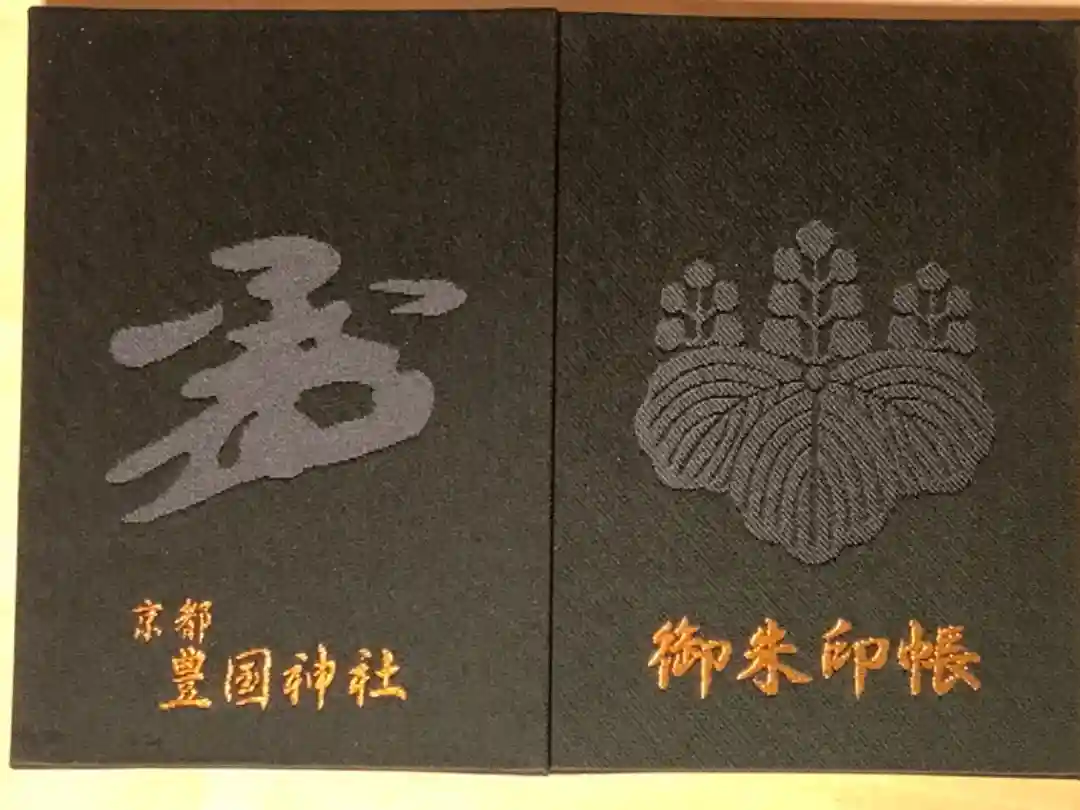 京都
豊国神社
御朱印帳